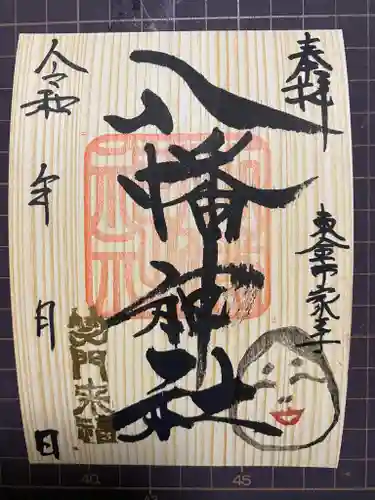 奉拝
東金市家之子
八幡神社
笑門来福
令和　年　月　日
40
45